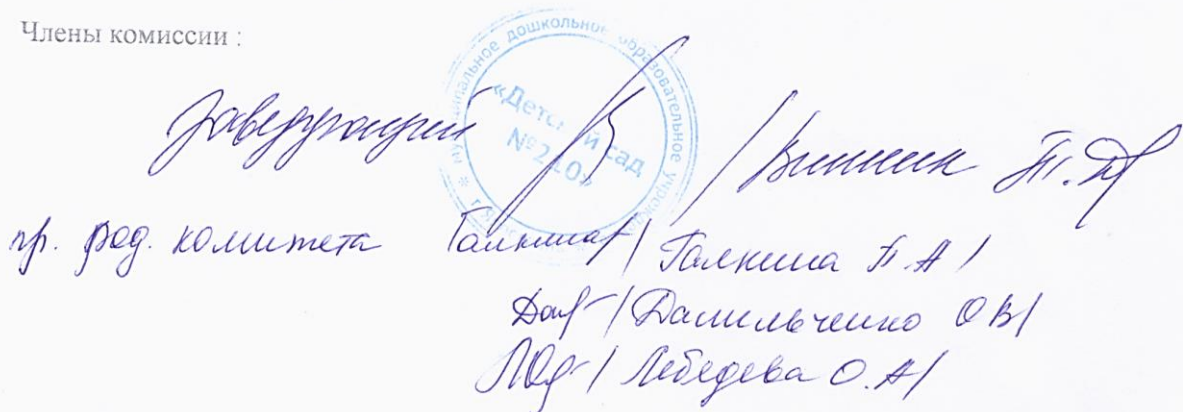 Члены комиссии :
Заведующий / Винник Т.Д
муниципальное дошкольное образовательное учреждение
«Детский сад
№210»
пр. род. комитета Галкина / Галкина Т.А /
/ Данильченко О В/
/ Лебедева О.А/